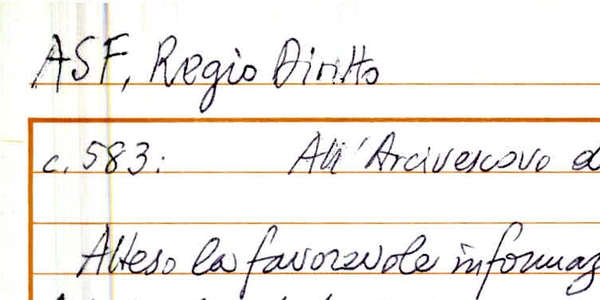 ASF, Regio Diritto
c. 583: All'Arcivescovo d
Atteso la favorevole informaz